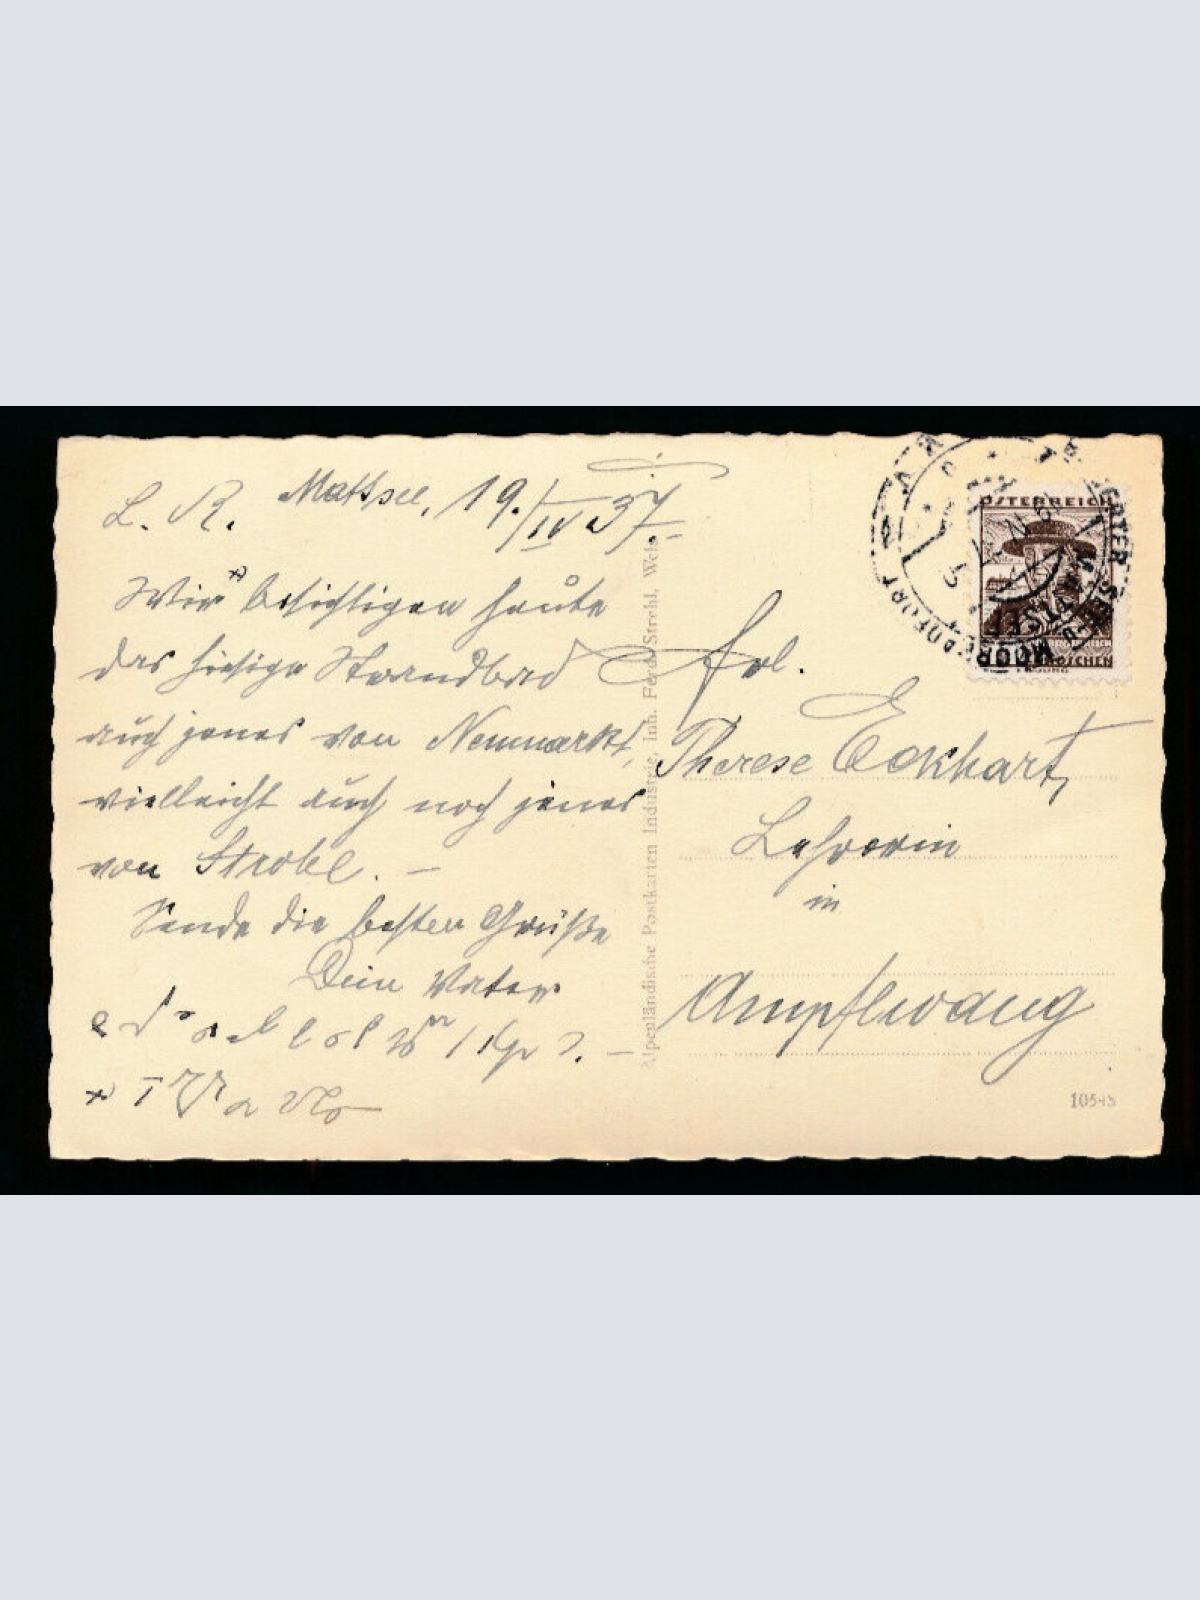 Mattsee, 19./IV 37.
L. R.
Wir *) besichtigen heute
das hiesige Strandbad
auch jenes von Neumarkt,
vielleicht auch noch jenes
von Strobl. —
Sende die besten Grüße
Dein Vater
Frl.
Therese Eckhart,
Lehrerin
in
Ampflwang
Alpenländische Postkarten Industrie, Inh. Ferd. Strehl, Wels
ÖSTERREICH
MOORKURORT
MATTSEE